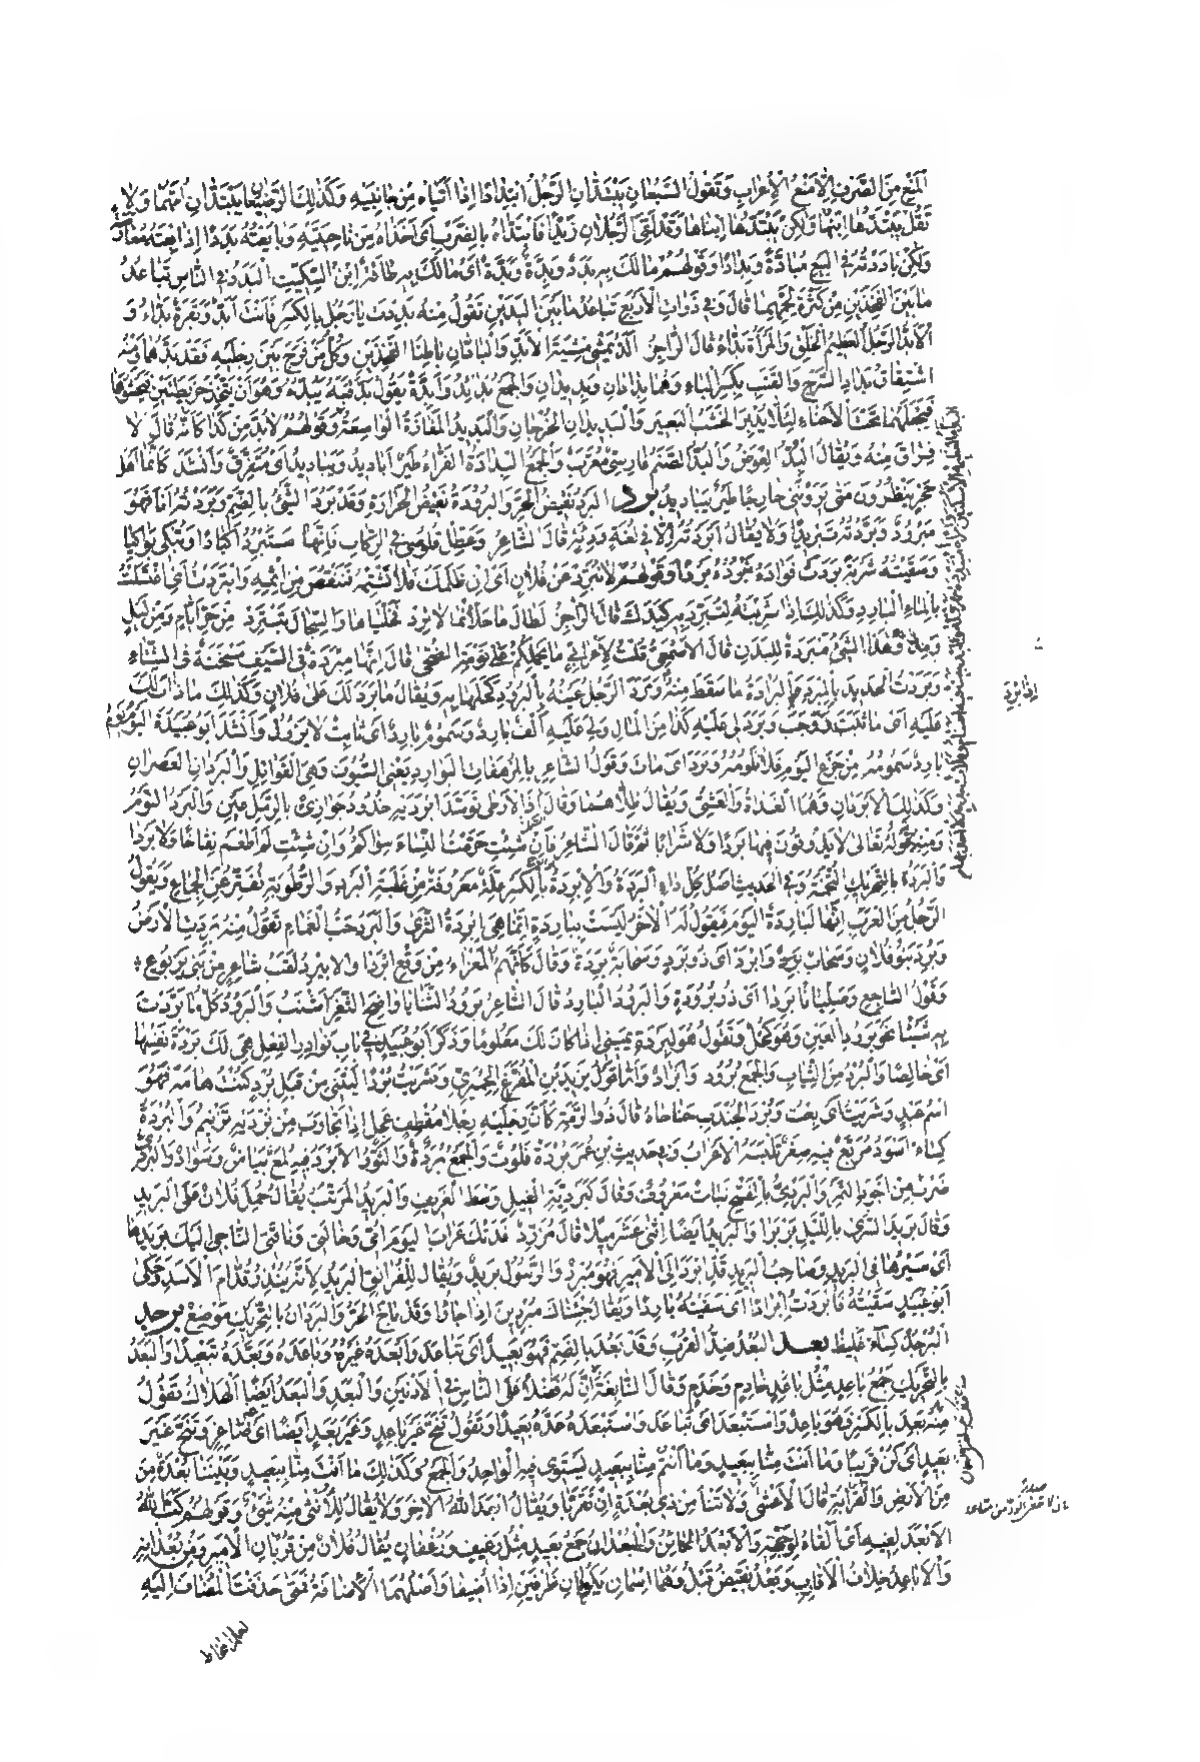 المنع من الصرف لامتنع الاعراب وتقول السبعان يبتدان الرجل ابتدادا اذا اتياه من جانبيه وكذلك الرضيعان يبتدان امهما ولا
تقل يبتدها ابنها ولكن يبتدها ابناها وقد لقى الرجلان زيدا فابتداه بالضرب اى اخذاه من ناحيتيه وبايعته بددا اذا بعته معارضة
ولكن باددته فى البيع مبادة وبدادا وقولهم مالك به بدد وبدة وبدة اى مالك به طاقة ابن السكيت البدد فى الناس تباعد
ما بين الفخذين من كثرة لحمهما قال وفى ذوات الاربع تباعد ما بين اليدين تقول منه بددت يا رجل بالكسر فانت ابد وبقرة بداء و
الابد الرجل العظيم الخلق والمراة بداء قال الراجز الد يمشى مشية الابد والبادان باطنا الفخذين وكل من فرج بين رجليه فقد بدهما ومنه
اشتقاق بداد السرج والقتب بكسر الباء وهما بدادان وبديدان والجمع بدائد وابدة يقول بد قتبه يبده وهو ان يتخذ خريطتين فيحشوهما
فيجعلهما تحت الاحناء لئلا يدبر الخشب البعير والبديدان الخرجان والبديد المفازة الواسعة وقولهم لا بد من كذا كانه قال لا
فراق منه ويقال البد العوض والبد الصنم فارسى معرب والجمع البددة الفراء طير اباديد ويباديد اى متفرق وانشد كانما اهل
حجر ينظرون متى يروننى خارجا طير يباديد برد البرد نقيض الحر والبرودة نقيض الحرارة وقد برد الشئ بالضم وبردته انا فهو
مبرود وبردته تبريدا ولا يقال ابردته الا فى لغة ردية قال الشاعر وعطل قلوصى فى الركاب فانها ستبرد اكبادا وتبكى بواكيا
وسقيته شربة بردت فؤاده تبرده بردا وقولهم لا تبرد عن فلان اى ان ظلمك فلا تشتمه فتنقص من اثمه وابتردت اى اغتسلت
بالماء البارد وكذلك اذا شربته لتبرد به كبدك قال الراجز لطال ما حلأتماها لا ترد فخلياها والسجال تبترد من حر ايام ومن ليل
ومد وهذا الشئ مبردة للبدن قال الاصمعى قلت لاعرابى ما يحملكم على نومة الضحى قال انها مبردة فى الصيف مسخنة فى الشتاء
وبردت الحديد بالمبرد والبرادة ما سقط منه وبرد الرجل عينه بالبرود كحلها به ويقال ما برد لك على فلان وكذلك ما ذاب لك
عليه اى ما ثبت ووجب وبرد لى عليه كذا من المال ولى عليه الف بارد وسموم بارد اى ثابت لا يزول وانشد ابو عبيدة اليوم يوم
بارد سمومه من جزع اليوم فلا تلومه وبرد اى مات وقول الشاعر بالمرهفات البوارد يعنى السيوف وهى القواتل والبردان العصران
وكذلك الابردان وهما الغداة والعشى ويقال ظلاهما وقال اذا الارطى توسد ابرديه خدود جوازئ بالرمل عين والبرد النوم
ومنه قوله تعالى لا يذوقون فيها بردا ولا شرابا ثم قال الشاعر فان شئت حرمت النساء سواكم وان شئت لم اطعم نقاخا ولا بردا
والبردة بالتحريك التخمة وفى الحديث اصل كل داء البردة والابردة بالكسر علة معروفة من غلبة البرد والرطوبة تفتر عن الجماع ويقول
الرجل من العرب انها لباردة اليوم فيقول له الاخر ليست بباردة انما هى ابردة الثرى والبرد حب الغمام تقول منه بردت الارض
وبرد بنو فلان وسحاب برد وابرد اى ذو برد وسحابة بردة وقال كانهم المعزاء من وقع ابردا والابيرد لقب شاعر من بنى يربوع
وقول الساجع وصليانا بردا اى ذو برودة والبرود البارد قال الشاعر برود الثنايا واضح الثغر اشنب والبرود كل ما بردت
به شيئا نحو برود العين وهو كحل وتقول هو لى بردة يمينى اذا كان لك معلوما وذكر ابو عبيد فى باب نوادر الفعل هى لك بردة نفسها
اى خالصا والبرد من الثياب والجمع برود وابراد واما قول يزيد بن المفرغ الحميرى وشريت بردا ليتنى من قبل برد كنت هامه فهو
اسم عبد وشريت اى بعت وبردا الجندب جناحاه قال ذو الرمة كان رجليه رجلا مقطف عجل اذا تجاوب من برديه ترنيم والبردة
كساء اسود مربع فيه صغر تلبسه الاعراب وفى حديث ابن عمر بردة فلوت والجمع برد والثور الابرد فيه لمع بياض وسواد والبردى
ضرب من اجود التمر والبردى بالفتح نبات معروف وقال كبردية الغيل وسط الغريف والبريد المرتب يقال حمل فلان على البريد
وقال بريد السرى بالليل بربرا والبريد ايضا اثنى عشر ميلا قال مزرد فدتك عراب اليوم امى وخالتى وناقتى الناجى اليك بريدها
اى سيرها فى البريد وصاحب البريد قد ابرد الى الامير فهو مبرد والرسول بريد ويقال للفرانق البريد لانه ينذر قدام الاسد وحكى
ابو عبيد سقيته فابردت ابرادا اى سقيته باردا ويقال جئناك مبردين اذا جاؤا وقد باخ الحر والبردان بالتحريك موضع برجد
البرجد كساء غليظ بعد البعد ضد القرب وقد بعد بالضم فهو بعيد اى تباعد وابعده غيره وباعده وبعده تبعيدا والبعد
بالتحريك جمع باعد مثل خادم وخدم وقال النابغة ان له فضلا على الناس فى الادنين والبعد والبعد ايضا الهلاك تقول
منه بعد بالكسر فهو باعد واستبعد اى تباعد واستبعده عده بعيدا وتقول تنح غير باعد وغير بعد ايضا اى غير صاغر وتنح غير
بعيد اى كن قريبا وما انت منا ببعيد وما انتم منا ببعيد يستوى فيه الواحد والجمع وكذلك ما انت منا ببعد وبيننا بعدة من
من الارض والقرابة قال الاعشى ولا تنأ من ذى بعدة ان تقربا ويقال ابعد الله الاخر ولا يقال للانثى منه شئ وقولهم كب الله
الابعد لفيه اى القاه لوجهه والابعد الخائن والبعدان جمع بعيد مثل رغيف ورغفان يقال فلان من قربان الامير ومن بعدانه
والاباعد خلاف الاقارب وبعد نقيض قبل وهما اسمان يكونان ظرفين اذا اضيفا واصلهما الاضافة فمتى حذفت المضاف اليه
اذا برد